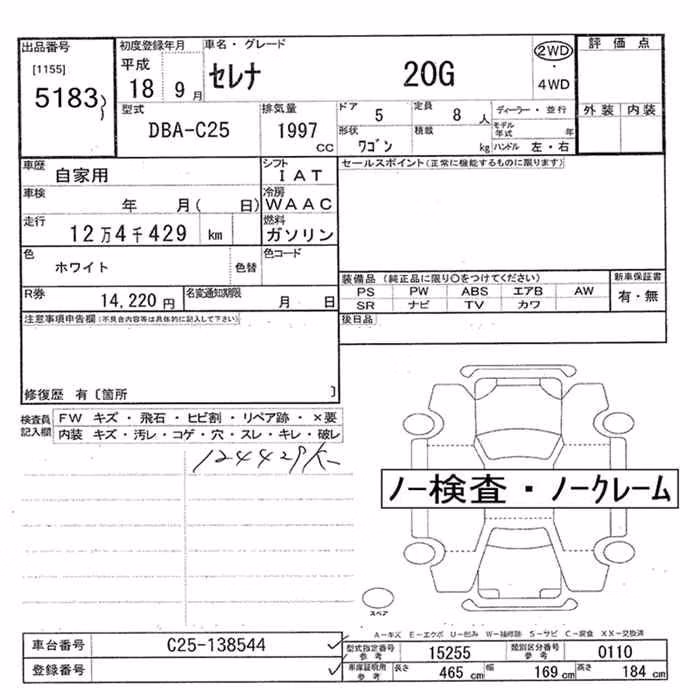 出品番号
[1155]
5183
初度登録年月
平成
18 9 月
車名・グレード
セレナ 20G
2WD
・
4WD
評価点
外装 内装
型式
DBA-C25
排気量
1997
CC
ドア 5
定員 8 人
ディーラー・並行
形状 ワゴン
積載 kg
モデル年式 年
ハンドル 左・右
車歴 自家用
シフト IAT
セールスポイント(正常に機能するものに限ります)
車検 年 月( 日)
冷房 WAAC
走行 12万4千429 km
燃料 ガソリン
色 ホワイト 色替
色コード
装備品(純正品に限り〇をつけてください)
新車保証書
PS PW ABS エアB AW
有・無
SR ナビ TV カワ
R券 14,220円
名変通知期限 月 日
注意事項申告欄(不具合内容等は具体的に記入して下さい)
後日品
修復歴 有〔箇所 〕
検査員記入欄
FW キズ・飛石・ヒビ割・リペア跡・×要
内装 キズ・汚レ・コゲ・穴・スレ・キレ・破レ
124429K
ノー検査・ノークレーム
スペア
A-キズ E-エクボ U-凹み W-補修跡 S-サビ C-腐食 XX-交換済
車台番号 C25-138544
型式指定番号 参考 15255
類別区分番号 参考 0110
登録番号
車庫証明用 参考 長さ 465 cm 幅 169 cm 高さ 184 cm